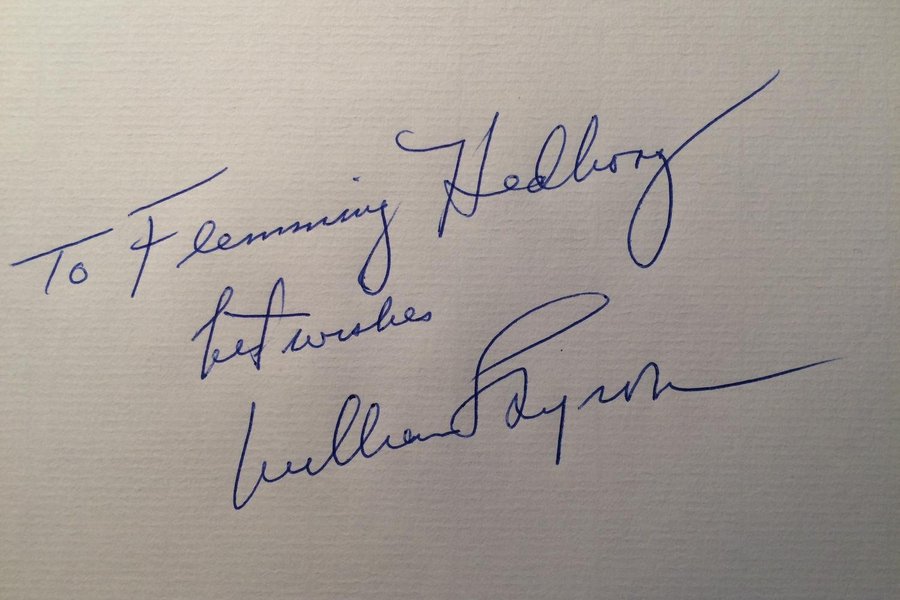 To Flemming Hedborg
best wishes
William Styron